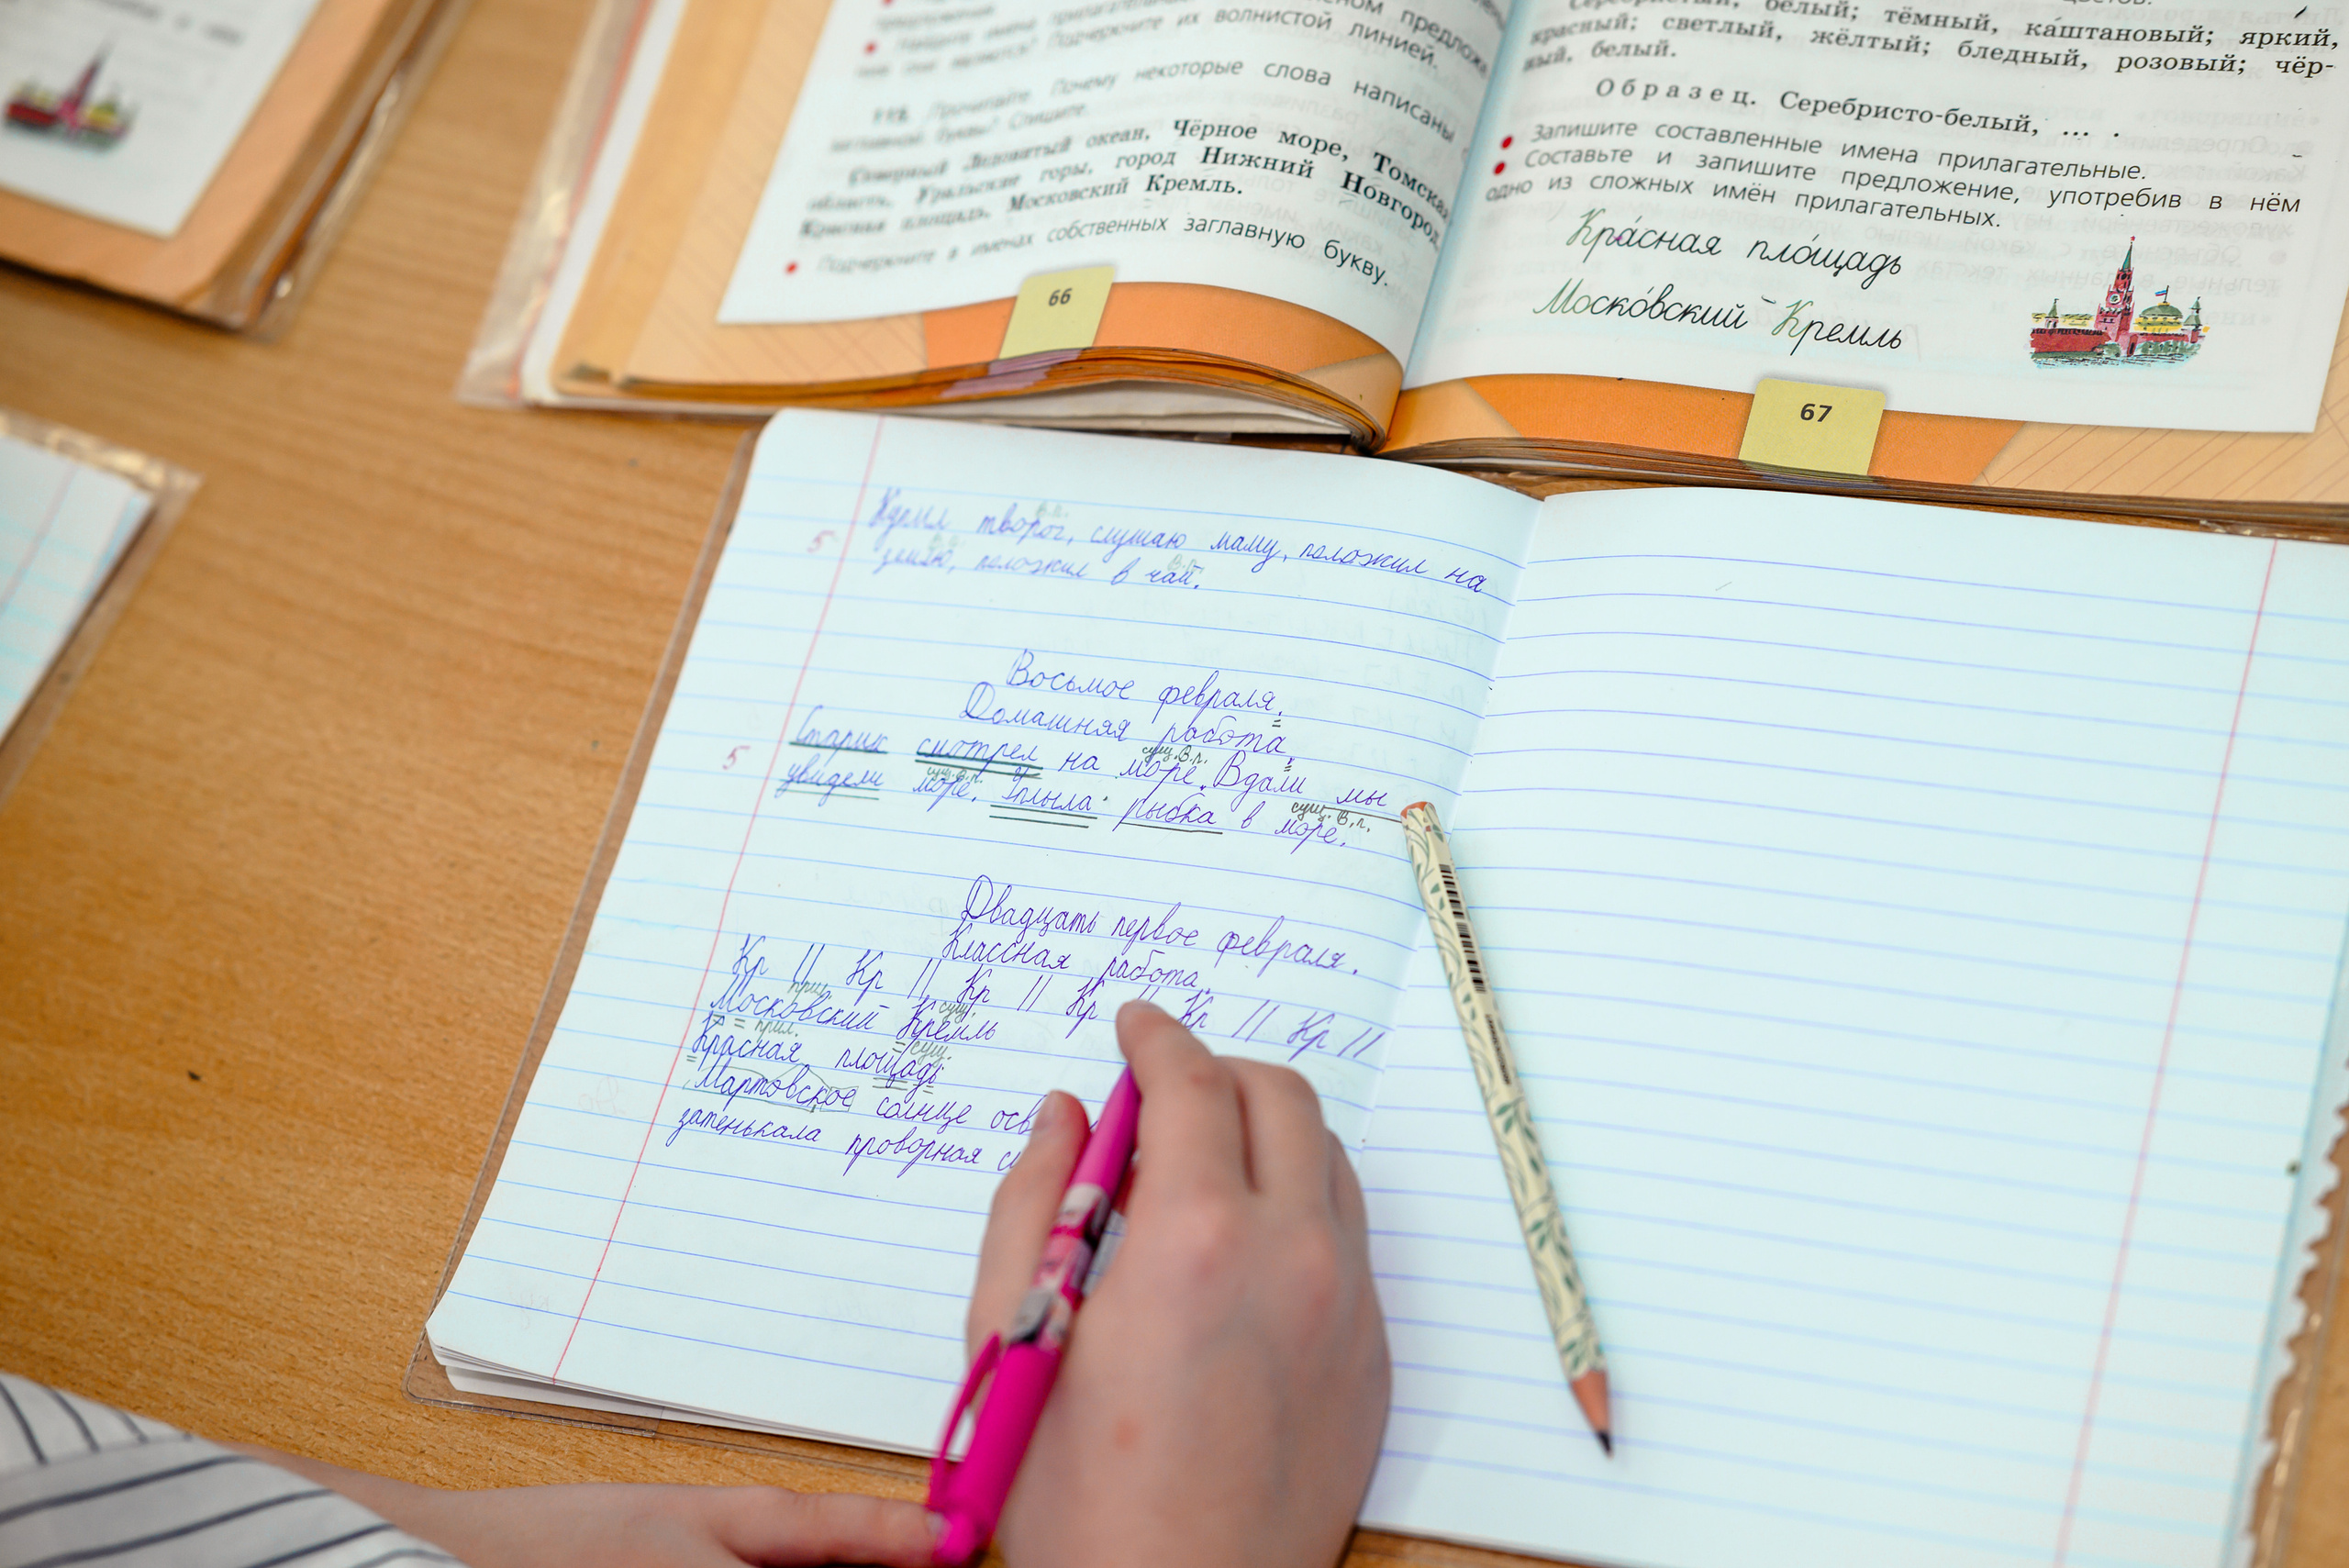 предложения.
Найдите имена прилагательные
Подчеркните их волнистой линией.
Прочитайте. Почему некоторые слова написаны с
заглавной буквы? Спишите.
Северный Ледовитый океан, Чёрное море, Томская
область, Уральские горы, город Нижний Новгород,
Красная площадь, Московский Кремль.
Подчеркните в именах собственных заглавную букву.
66
белый; тёмный, каштановый; яркий,
красный; светлый, жёлтый; бледный, розовый; чёр-
ный, белый.
Образец. Серебристо-белый, ... .
Запишите составленные имена прилагательные.
Составьте и запишите предложение, употребив в нём
одно из сложных имён прилагательных.
Кра́сная пло́щадь
Моско́вский Кремль
67
В.п.
творог, слушаю маму, положил на
5
землю, положил в чай.
В.п.
Восьмое февраля.
Домашняя работа.
сущ. В.п.
Старик смотрел на море. Вдали мы
5
сущ. В.п. сущ. В.п.
увидели море. Уплыла рыбка в море.
Двадцать первое февраля.
Классная работа.
Кр || Кр || Кр || Кр || Кр || Кр ||
прил. сущ.
Московский Кремль
прил. сущ.
Красная площадь
Мартовское солнце осв
затенькала проворная с